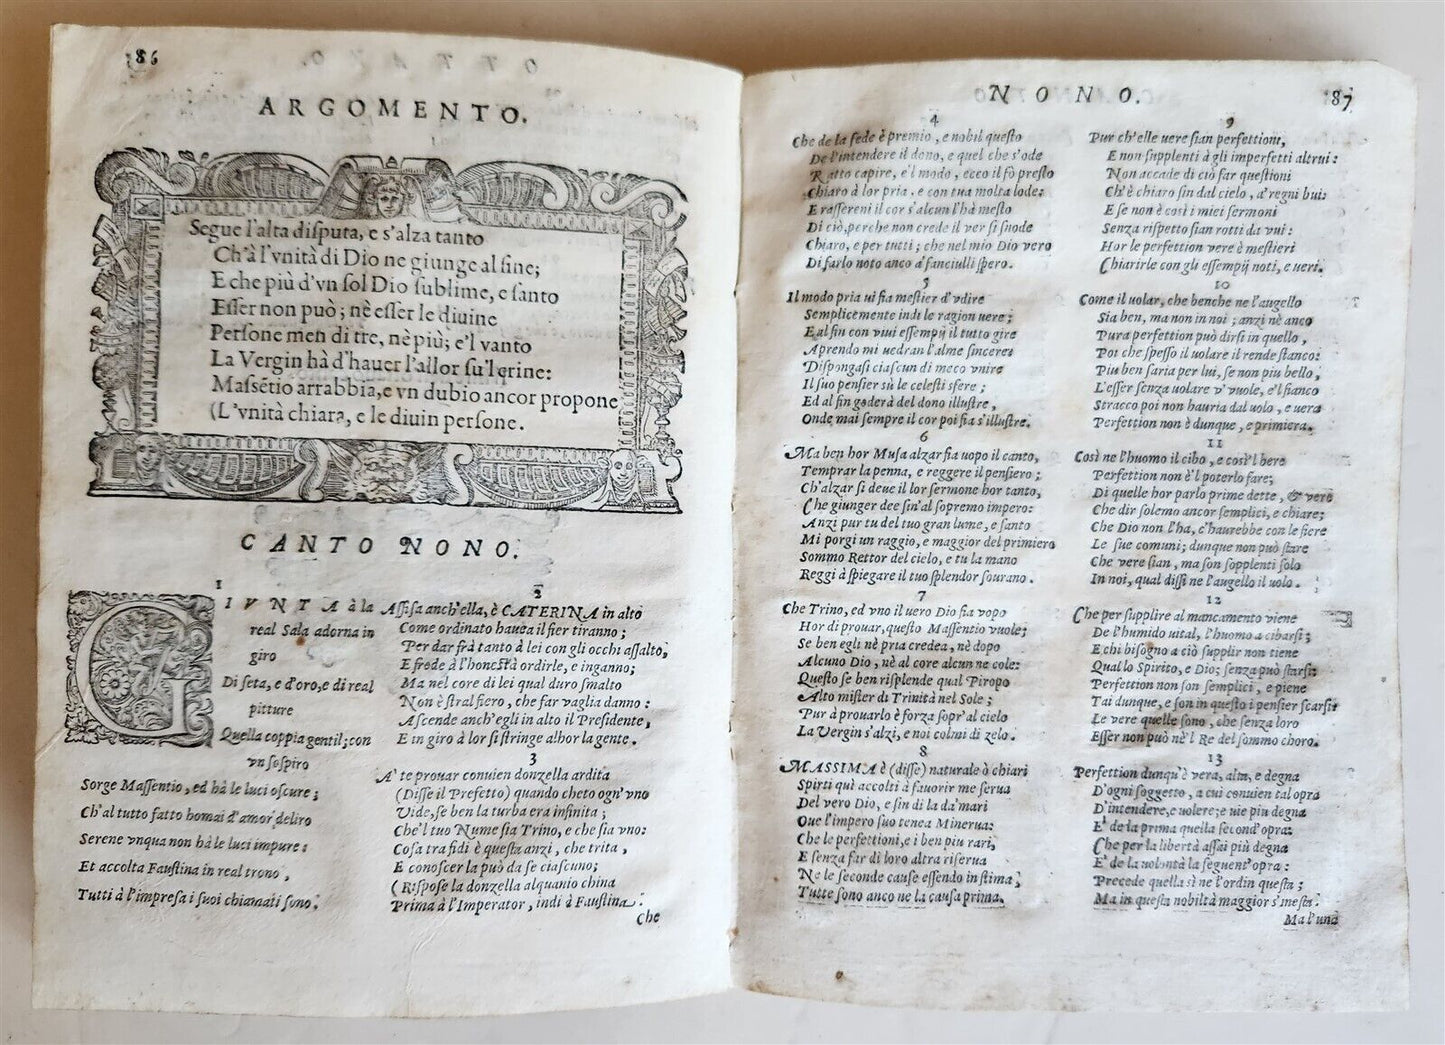 86
ARGOMENTO.
Segue l'alta disputa, e s'alza tanto
Ch'à l'vnità di Dio ne giunge al fine;
E che più d'vn sol Dio sublime, e santo
Esser non può; nè esser le diuine
Persone men di tre, nè più; e'l vanto
La Vergin hà d'hauer l'allor su'l crine:
Massētio arrabbia, e vn dubio ancor propone
(L'vnità chiara, e le diuin persone.
CANTO NONO.
1
GIVNTA à la
real Sala adorna in
giro
Di seta, e d'oro, e di real
pitture
Quella coppia gentil; con
vn sospiro
Sorge Massentio, ed hà le luci oscure;
Ch'al tutto fatto homai d'amor deliro
Serene vnqua non hà le luci impure:
Et accolta Faustina in real trono,
Tutti à l'impresa i suoi chiamati sono.
2
Assisa anch'ella, è CATERINA in alto
Come ordinato hauea il fier tiranno;
Per dar frà tanto à lei con gli occhi assalto,
E frode à l'honestà ordirle, e inganno;
Ma nel core di lei qual duro smalto
Non è stral fiero, che far vaglia danno:
Ascende anch'egli in alto il Presidente,
E in giro à lor si stringe alhor la gente.
3
A' te prouar conuien donzella ardita
(Disse il Prefetto) quando cheto ogn'vno
Vide, se ben la turba era infinita;
Che'l tuo Nume sia Trino, e che sia vno:
Cosa tra fidi è questa anzi, che trita,
E conoscer la può da se ciascuno;
(Rispose la donzella alquanto china
Prima à l'Imperator, indi à Faustina.
Che
NONO.
87
4
Che de la fede è premio, e nobil questo
De l'intendere il dono, e quel che s'ode
Ratto capire, e'l modo, ecco il fò presto
Chiaro à lor pria, e con tua molta lode:
E rassereni il cor s'alcun l'hà mesto
Di ciò, perche non crede il ver si snode
Chiaro, e per tutti; che nel mio Dio vero
Di farlo noto anco a' fanciulli spero.
5
Il modo pria ui fia mestier d'vdire
Semplicemente indi le ragion uere;
E al fin con viui essempij il tutto gire
Aprendo mi uedran l'alme sincere:
Dispongasi ciascun di meco vnire
Il suo pensier sù le celesti sfere;
Ed al fin goderà del dono illustre,
Onde mai sempre il cor poi fia s'illustre.
6
Ma ben hor Musa alzar fia uopo il canto,
Temprar la penna, e reggere il pensiero;
Ch'alzar si deue il lor sermone hor tanto,
Che giunger dee sin'al sopremo impero:
Anzi pur tu del tuo gran lume, e santo
Mi porgi un raggio, e maggior del primiero
Sommo Rettor del cielo, e tu la mano
Reggi à spiegare il tuo splendor sourano.
7
Che Trino, ed vno il uero Dio fia vopo
Hor di prouar, questo Massentio vuole;
Se ben egli nè pria credea, nè dopo
Alcuno Dio, nè al core alcun ne cole:
Questo se ben risplende qual Piropo
Alto mister di Trinità nel Sole;
Pur à prouarlo è forza sopr'al cielo
La Vergin s'alzi, e noi colmi di zelo.
8
MASSIMA è (disse) naturale ò chiari
Spirti quì accolti à fauorir me serua
Del vero Dio, e sin di la da' mari
Oue l'impero suo tenea Minerua:
Che le perfettioni, e i ben piu rari,
E senza far di loro altra riserua
Ne le seconde cause essendo in stima,
Tutte sono anco ne la causa prima.
9
Pur ch'elle uere sian perfettioni,
E non supplenti à gli imperfetti altrui:
Non accade di ciò far questioni
Ch'è chiaro sin dal cielo, a' regni bui:
E se non è così i miei sermoni
Senza rispetto sian rotti da vui:
Hor le perfettion vere è mestieri
Chiarirle con gli essempij noti, e ueri.
10
Come il uolar, che benche ne l'augello
Sia ben, ma non in noi; anzi nè anco
Pura perfettion può dirsi in quello,
Poi che spesso il uolare il rende stanco:
Piu ben saria per lui, se non piu bello,
L'esser senza uolare v'vuole, e'l fianco
Stracco poi non hauria dal uolo, e uera
Perfettion non è dunque, e primiera.
11
Così ne l'huomo il cibo, e così'l bere
Perfettion non è'l poterlo fare;
Di quelle hor parlo prime dette, & vere
Che dir solemo ancor semplici, e chiare;
Che Dio non l'ha, c'haurebbe con le fiere
Le sue comuni; dunque non può stare
Che vere sian, ma son sopplenti solo
In noi, qual dissi ne l'augello il uolo.
12
Che per supplire al mancamento viene
De l'humido uital, l'huomo a cibarsi;
E chi bisogno a ciò supplir non tiene
Qual lo Spirito, e Dio; senza può starsi:
Perfettion non son semplici, e piene
Tai dunque, e son in questo i pensier scarsi
Le vere quelle sono, che senza loro
Esser non può nè'l Re del sommo choro.
13
Perfettion dunqu'è vera, alta, e degna
D'ogni soggetto, a cui conuien tal opra
D'intendere, e uolere; e uie piu degna
E' de la prima quella second'opra:
Che per la libertà assai più degna
E' de la uolontà la seguent'opra:
Precede quella sì ne l'ordin questa;
Ma in questa nobiltà maggior s'inesta.
Ma l'una